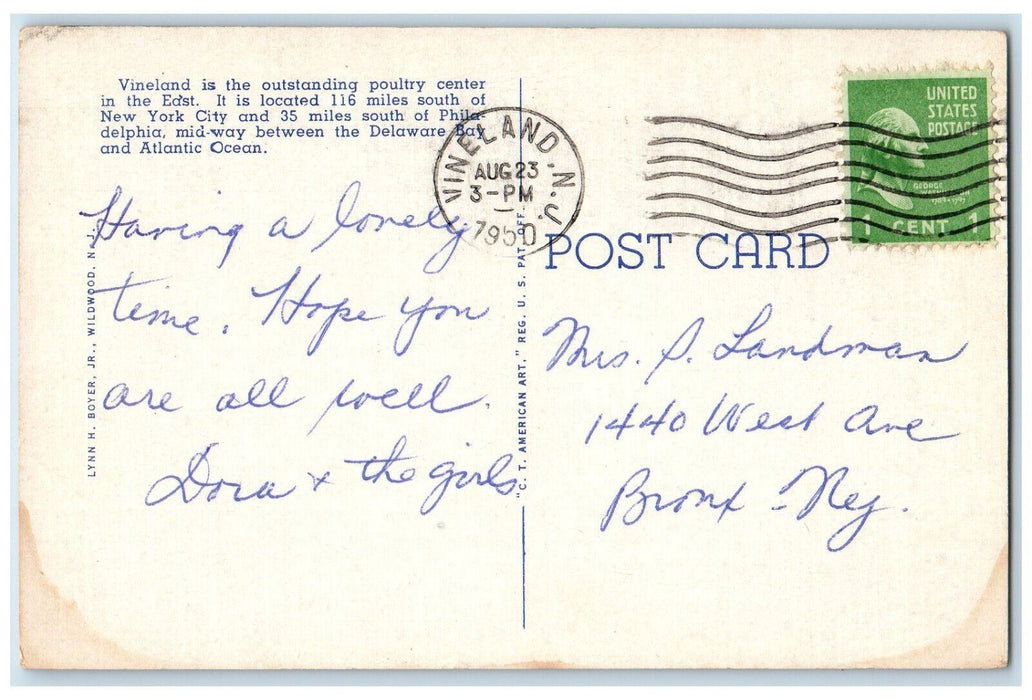 Vineland is the outstanding poultry center
in the East. It is located 116 miles south of
New York City and 35 miles south of Phila-
delphia, mid-way between the Delaware Bay
and Atlantic Ocean.
VINELAND, N.J.
AUG 23
3-PM
1950
UNITED
STATES
POSTAGE
GEORGE
1 CENT 1
POST CARD
Having a lovely
time. Hope you
are all well.
Dora + the girls
Mrs. S. Landman
1440 West Ave
Bronx - NY.
LYNN H. BOYER, JR., WILDWOOD, N. J.
"C. T. AMERICAN ART," REG. U. S. PAT. OFF.